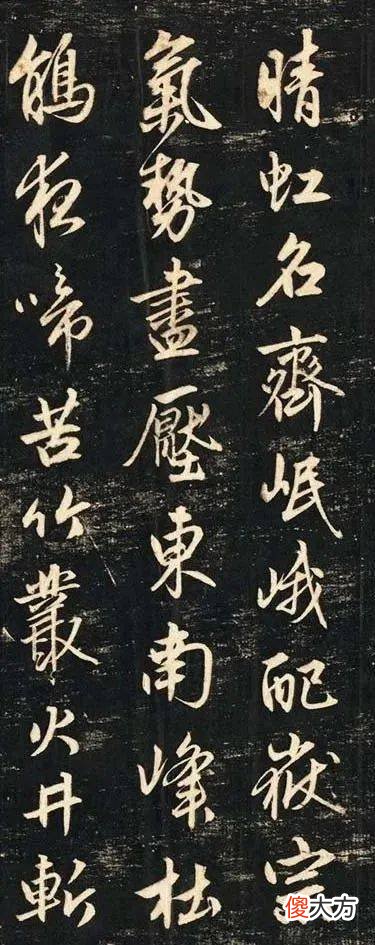 晴虹名齊岷峨配嶽宗
氣勢盡壓東南峰杜
鵑夜啼苦竹叢火井斬
傻大方